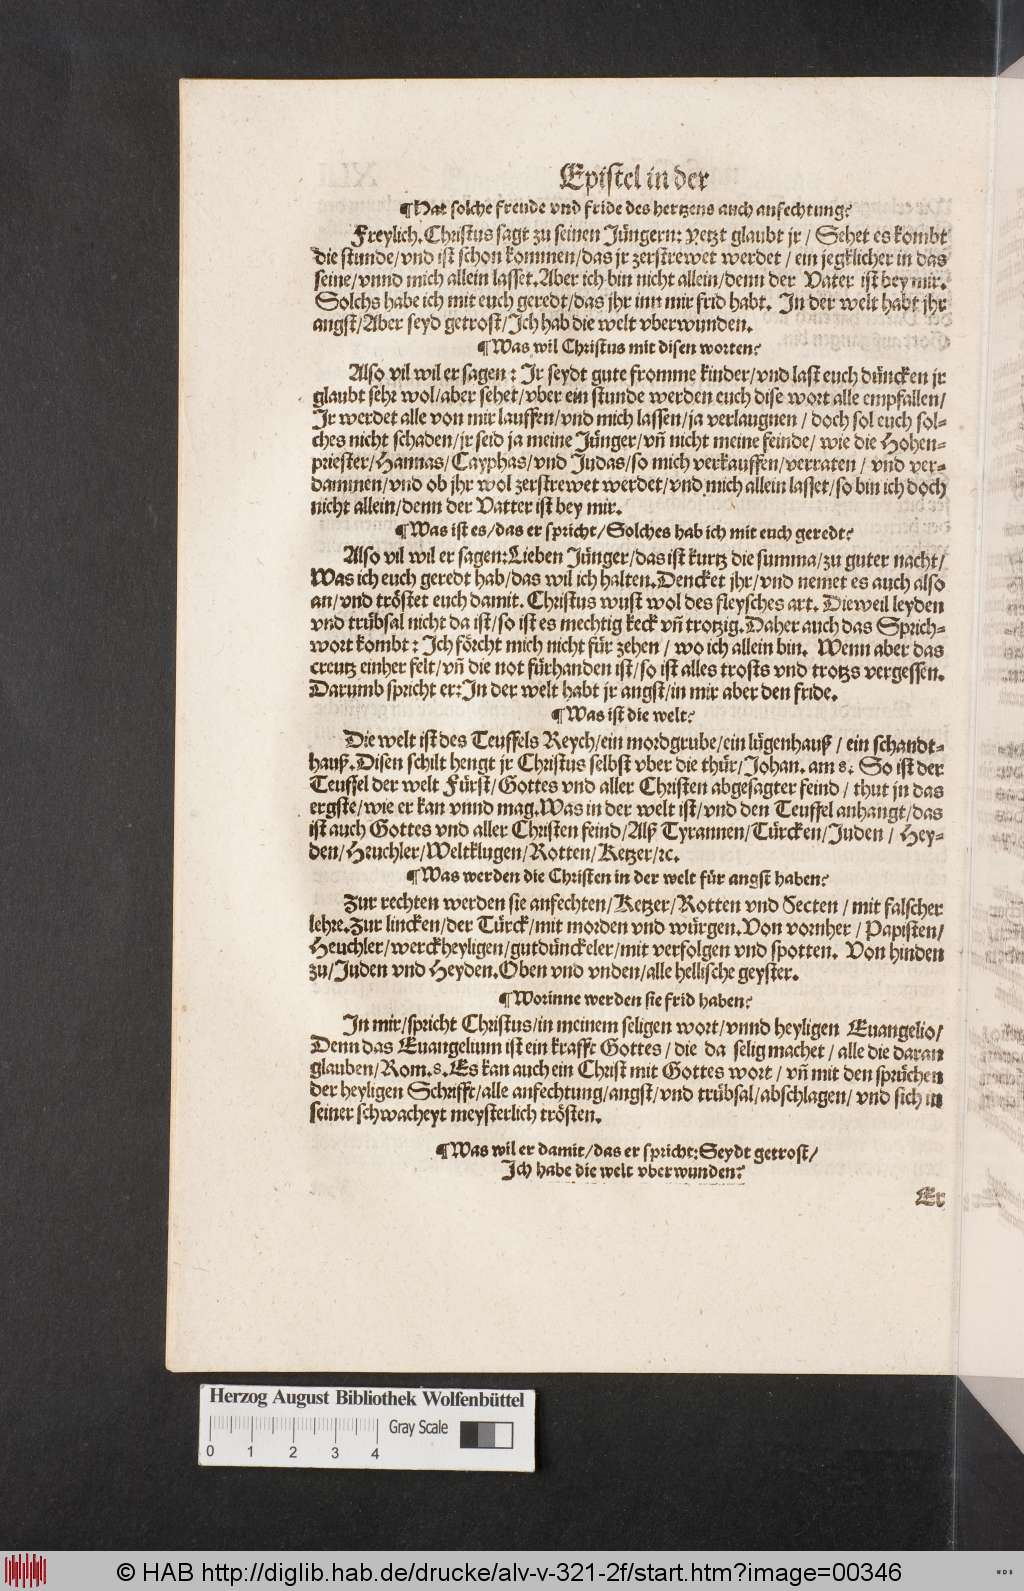 Epistel in der
¶Hat solche freude vnd fride des hertzens auch anfechtung?
Freylich. Christus sagt zu seinen Jüngern: Yetzt glaubt jr / Sehet es kombt
die stunde/vnd ist schon kommen/das jr zerstrewet werdet / ein jegklicher in das
seine/vnnd mich allein lasset. Aber ich bin nicht allein/denn der Vater ist bey mir.
Solchs habe ich mit euch geredt/das jhr inn mir frid habt. In der welt habt jhr
angst/Aber seyd getrost/Ich hab die welt vberwunden.
¶Was wil Christus mit disen worten?
Also vil wil er sagen: Ir seydt gute fromme kinder/vnd last euch düncken jr
glaubt sehr wol/aber sehet/vber ein stunde werden euch dise wort alle empfallen/
Ir werdet alle von mir lauffen/vnd mich lassen/ja verlaugnen / doch sol euch sol-
ches nicht schaden/jr seid ja meine Jünger/vñ nicht meine feinde/ wie die Hohen-
priester/Hannas/Cayphas/vnd Judas/so mich verkauffen/verraten / vnd ver-
dammen/vnd ob jhr wol zerstrewet werdet/vnd mich allein lasset/so bin ich doch
nicht allein/denn der Vatter ist bey mir.
¶Was ist es/das er spricht/Solches hab ich mit euch geredt?
Also vil wil er sagen: Lieben Jünger/das ist kurtz die summa/zu guter nacht/
Was ich euch geredt hab/das wil ich halten. Dencket jhr/vnd nemet es auch also
an/vnd tröstet euch damit. Christus wust wol des fleysches art. Dieweil leyden
vnd trübsal nicht da ist/so ist es mechtig keck vñ trotzig. Daher auch das Sprich-
wort kombt: Ich förcht mich nicht für zehen / wo ich allein bin. Wenn aber das
creutz einher felt/vñ die not fürhanden ist/so ist alles trosts vnd trotzs vergessen.
Darumb spricht er: In der welt habt jr angst/in mir aber den fride.
¶Was ist die welt?
Die welt ist des Teuffels Reych/ein mordgrube/ein lügenhauß / ein schandt-
hauß. Disen schilt hengt jr Christus selbst vber die thür/Johan. am 8. So ist der
Teuffel der welt Fürst/Gottes vnd aller Christen abgesagter feind / thut jn das
ergste/wie er kan vnnd mag. Was in der welt ist/vnd den Teuffel anhangt/das
ist auch Gottes vnd aller Christen feind/Alß Tyrannen/Türcken/Juden / Hey-
den/Heuchler/Weltklugen/Rotten/Ketzer/ꝛc.
¶Was werden die Christen in der welt für angst haben?
Zur rechten werden sie anfechten/Ketzer/Rotten vnd Secten / mit falscher
lehre. Zur lincken/der Türck/mit morden vnd würgen. Von vornher / Papisten/
Heuchler/werckheyligen/gutdünckeler/mit verfolgen vnd spotten. Von hinden
zu/Juden vnd Heyden. Oben vnd vnden/alle hellische geyster.
¶Worinne werden sie frid haben?
In mir/spricht Christus/in meinem seligen wort/vnnd heyligen Euangelio/
Denn das Euangelium ist ein krafft Gottes / die da selig machet / alle die daran
glauben/Rom. 8. Es kan auch ein Christ mit Gottes wort / vñ mit den sprüchen
der heyligen Schrifft/alle anfechtung/angst/vnd trübsal/abschlagen/ vnd sich in
seiner schwacheyt meysterlich trösten.
¶Was wil er damit/das er spricht: Seydt getrost/
Ich habe die welt vberwunden?
Er
Herzog August Bibliothek Wolfenbüttel
Gray Scale
0 1 2 3 4
© HAB http://diglib.hab.de/drucke/alv-v-321-2f/start.htm?image=00346